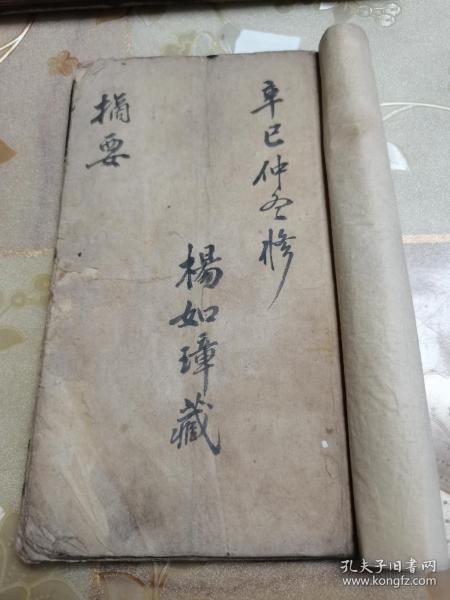 辛巳仲冬修
楊如璋藏
摘要
孔夫子旧书网
www.kongfz.com